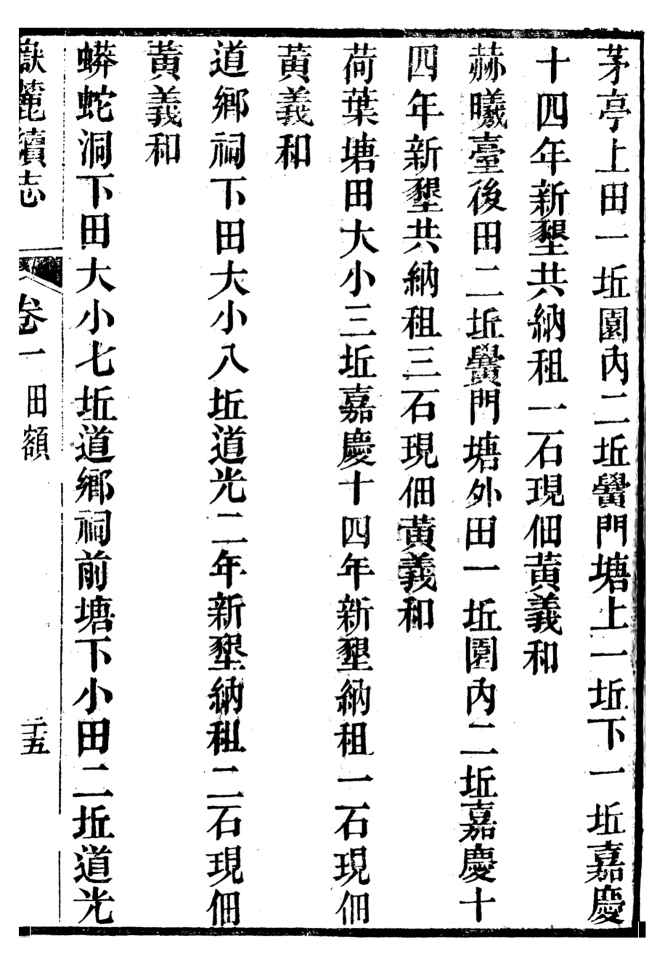 茅亭上田一坵園內二坵黌門塘上一坵下一坵嘉慶
十四年新墾共納租一石現佃黃義和
赫曦臺後田二坵黌門塘外田一坵園內二坵嘉慶十
四年新墾共納租三石現佃黃義和
荷葉塘田大小三坵嘉慶十四年新墾納租一石現佃
黃義和
道鄉祠下田大小八坵道光二年新墾納租二石現佃
黃義和
蟒蛇洞下田大小七坵道鄉祠前塘下小田二坵道光
嶽麓續志 卷一 田額 二十五